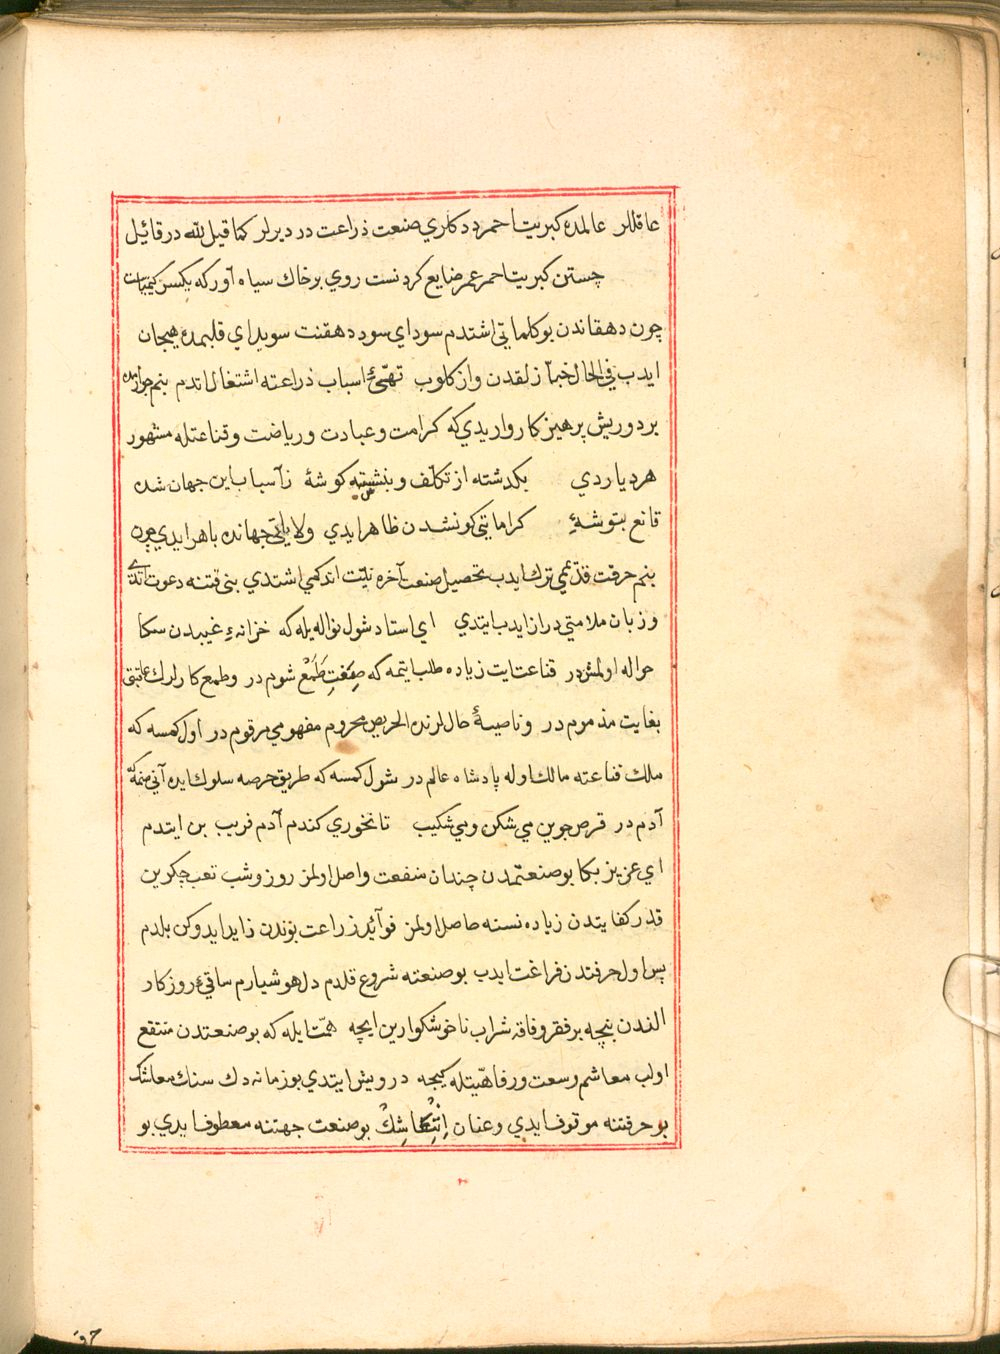 عاقللر عالمده كبريت احمر ددكلري صنعت زراعت در ديرلر كما قيل لله در قائيل
جستن كبريت احمر عمر ضايع كردنست روي بر خاك سياه آور كه يكسر كيمياست
چون دهقاندن بو كلماتي اشتدم سوداي سود دهقنت سويداي قلبمده هيجان
ايدب في الحال خبازلقدن واز كلوب تهيّئ اسباب زراعته اشتغال اتدم بنم جوارمده
بر درويش پرهيزكار وار يديكه كرامت و عبادت و رياضت و قناعتله مشهور
هر ديار دي بكذشته از تكلّف و بنشسته كوشۀ ز اسباب اين جهان شده
قانع بتوشۀ كراماتي كونشدن ظاهر ايدي ولاياتي جهانده باهر ايدي چون
بنم حرفت قديمي ترك ايدب تحصيل صنعت آخره نيّت اندكمي اشتدي بني قتنه دعوت اتدي
و زبان ملامتي دراز ايدب ايتدي اي استاد شول نواله يله كه خزانۀ غيبدن سكا
حواله اولمشدر قناعت ايت زياده طلب ايتمه كه صِفَتِ طَمَعْ شوم در و طمعكارلرك عاقبتي
بغايت مذموم در و ناصيۀ حاللرنده الحريص محروم مفهومي مرقوم در اول كمسه كه
ملك قناعته مالك اوله پادشاه عالم در شول كمسه كه طريق حرصه سلوك ايده آني صنمكه
آدم در قرص جوين مي شكن و مي شكيب تا نخوري كندم آدم فريب بن ايتدم
اي عزيز بكا بو صنعتمدن چندان منفعت واصل اولمز روز و شب تعب چكرين
قدر كفايتدن زياده نسنه حاصل اولمز فوآئد زراعت بوندن زايد ايدوكن بلدم
پس اول حرفتدن فراغت ايدب بو صنعته شروع قلدم دل هوشيارم ساقئ روزكار
الندن نيچه بر فقر و فاقه شراب ناخوشكوارين ايچه همّت ايله كه بو صنعتدن منتفع
اولب معاشم وسعت و رفاهيّتله كيچه درويش ايتدي بو زمانه دك سنك معاشك
بو حرفتنه موقوف ايدي و عنان اِنْتِعَاشِكْ بو صنعت جهتنه معطوف ايدي بو
حرفـ